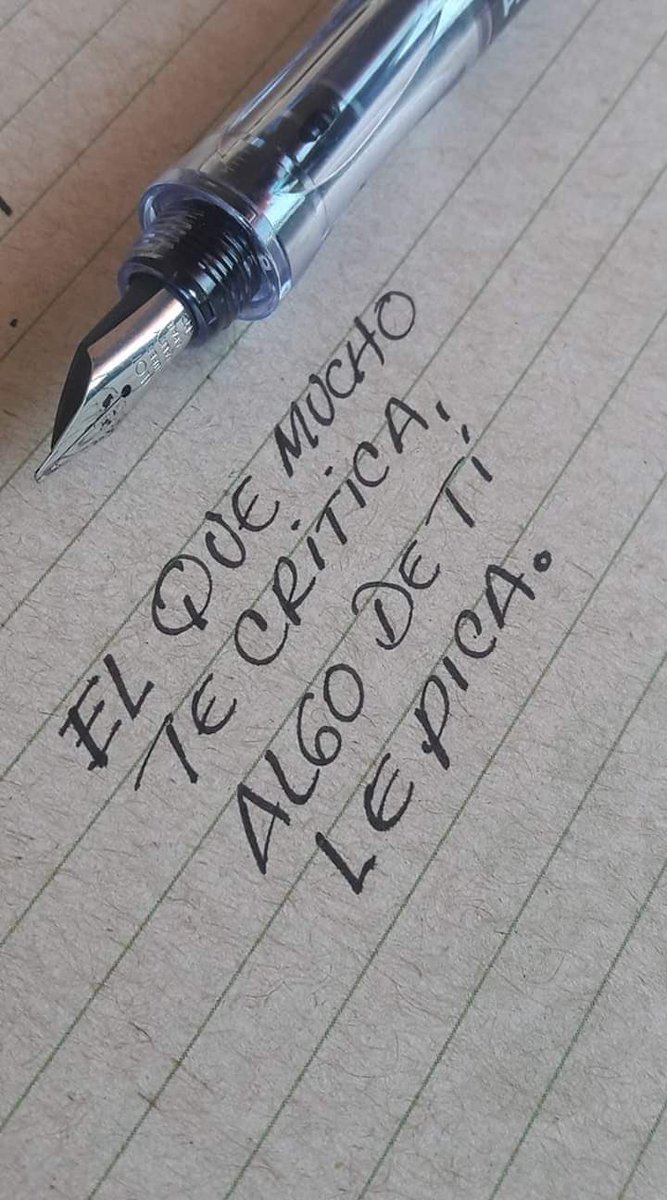 EL QUE MUCHO
TE CRÍTICA,
ALGO DE TÍ
LE PICA.